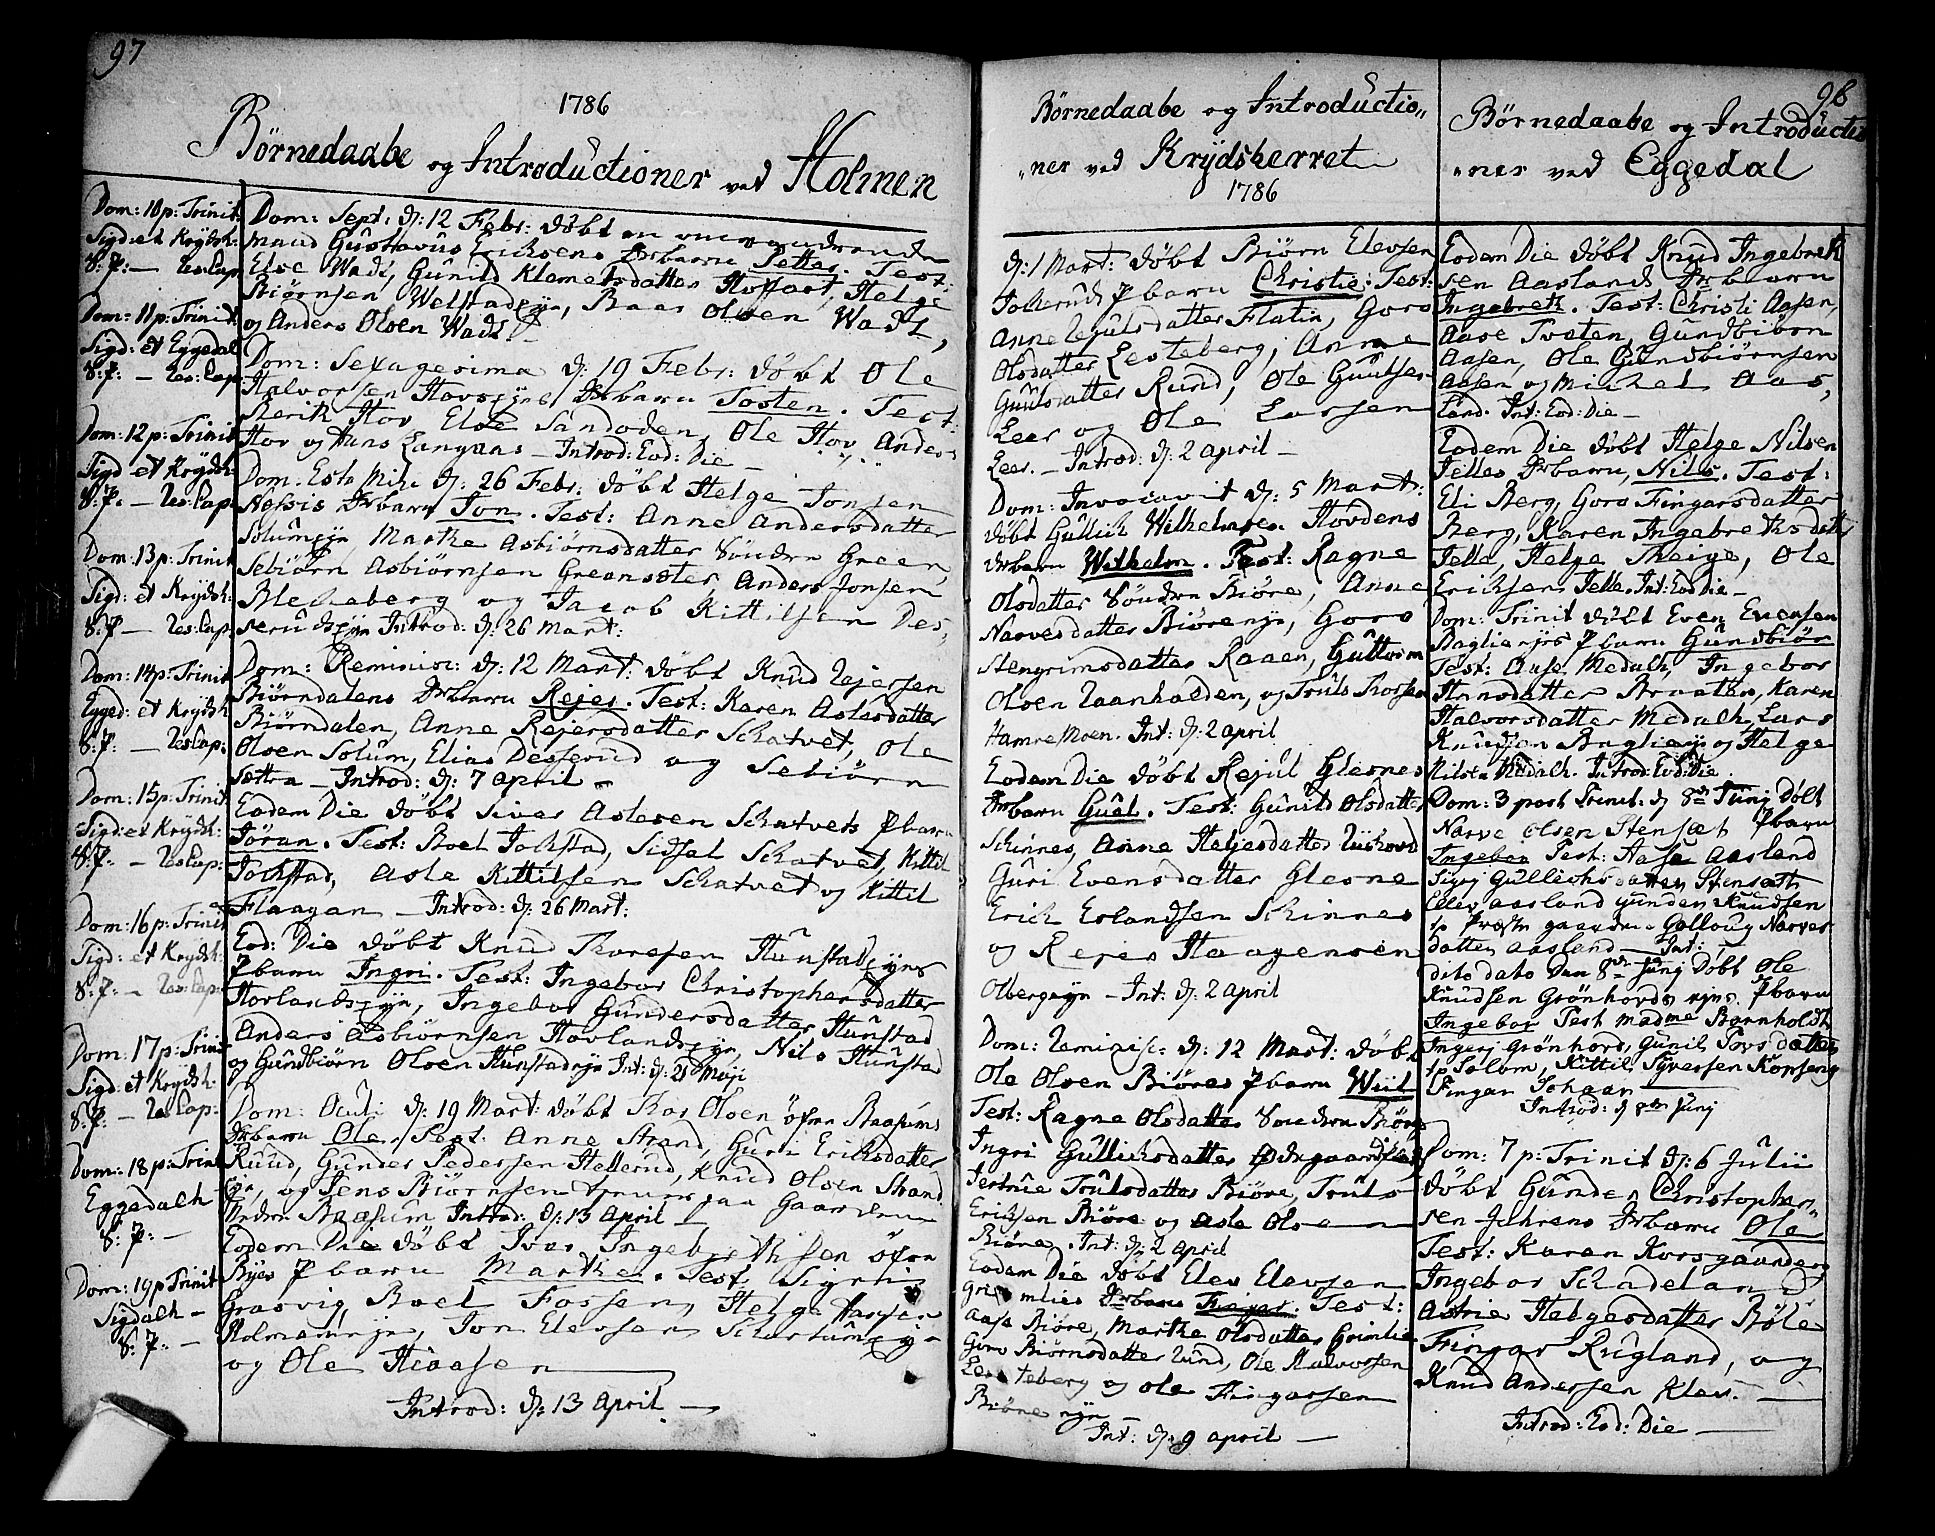 97
1786
Børnedaabe og Introductioner ved Holmen
Dom: 10 p: Trinit:
Sigd: et Krydsh:
S: P: — Res: Cap:
Dom: 11 p: Trinit:
Sigd: et Eggedal
S: P: — Res: Cap:
Dom: 12 p: Trinit
Sigd et Krydsh:
S: P. — Res: Cap.
Dom: 13 p: Trinit
Sigd: et Krydsh:
S: P — Res: Cap.
Dom: 14 p: Trinit
Egged: et Krydsh:
S: P: — Res: Cap:
Dom: 15 p: Trinit
Sigd: et Krydsh:
S: P: — Res: Cap:
Dom: 16 p: Trinit
Sigd: et Krydsh:
S: P: — Res: Cap:
Dom: 17 p: Trinit
Sigd: et Krydsh:
S: P: — Res Cap:
Dom: 18 p: Trinit
Eggedalh
S: P: —
Dom: 19 p Trinit
Sigdalh —
S: P: —
Dom: Sept: d: 12 Febr: døbt en omvandrende
Mand Gustavus Ericksens barn Petter. Test:
Else Wadt, Gunild Klemetsdatter Hoffart, Helge
Biørnsen Welstadejn, Baar Olsen Wadt,
og Anders Olsen Wadt —
Dom: Sexagesima d: 19 Febr: døbt Ole
Halvorsen Hovsejns barn Tosten. Test:
Berit Hov, Else Sandoden, Ole Hov, Anders
Hov og Hans Langaas — Introd: Eod: Die —
Dom: Esto Mihi d: 26 Febr: døbt Helge Jonsen
barn Jon. Test: Anne Andersdatter
Solumejn, Marthe Asbiørnsdatter Søndre Green,
Sebiørn Asbiørnsen Anders Jonsen
Blekeberg og Jacob Kittilsen Des,,
serudsejn Introd: d: 26 Mart:
Dom: Reminisc: d: 12 Mart: døbt Knud Rejersen
Biørndalens barn Rejer. Test: Karen Aslesdatter
Biørndalen, Anne Rejersdatter Schatvet, Ole
Olsen Solum, Elias Desserud og Sebiørn
Sættra — Introd: d: 7 April —
Eodem Die døbt Siver Aslesen Schatvets P barn
Jøran. Test: Boel Jockstad, Sidsel Schatvet, Kittil
Jockstad, Asle Kittilsen Schatvet og Kittil
Flaagan — Introd: d: 26 Mart:
Eod: Die døbt Knud Thoresen Hunstadejns
P barn Ingri. Test: Ingebor Christophersdatter
Hovlandsejn, Ingebor Gundersdatter Hunstad
Anders Asbiørnsen Hovlandsejn, Nils Hunstad
og Gundbiørn Olsen Hunstadejn Int: d: 21 Maji
Dom: Oculi d: 19 Mart: døbt Thor Olsen øfre Braasums
barn Ole. Test: Anne Strand, Guri Ericksdatter
Ruud, Gunder Pedersen Hellerud, Knud Olsen Strand
ejn, og Jens Biørnsen paa Gaarden
Nedre Braasum Introd: d: 13 April —
Eodem Die døbt Iver Ingebrethsen øfre
Byes P barn Marthe. Test Sigri
Grasvig, Boel Fossen, Helge
Holmanejn, Jon Elevsen
og Ole Hiaasen
Introd: d: 13 April —
Børnedaabe og Introductio,,
,,ner ved Krydsherret
1786
d: 1 Mart: døbt Biørn Elevsen
Jokerud P barn Christie: Test:
Anne Rejulsdatter Flatin, Goro
Olsdatter Lesteberg, Anne
Guulsdatter Rund, Ole
Leer og Ole Larsen
Leer. — Introd: d: 2 April —
Dom: Invocavit d: 5 Mart:
døbt Gullich Wilhelmsen Hovdens
barn Wilhelm. Test: Ragne
Olsdatter Søndre Biøre, Anne
Narvesdatter Biørenejn, Goro
Stengrimsdatter Raaen, Guttorm
Olsen Raanhalden, og Truls Thorsen
Hamremoen. Int: d: 2 April
Eodem Die døbt Rejul Glesnes
barn Guul. Test: Gunild Olsdatter
Schinnes, Anne Helgesdatter
Guri Evensdatter Glesne
Erick Erlandsen Schinnes
og Rejer Haagensen
Olbergejn — Int: d: 2 April
Dom: Reminisc: d: 12 Mart: døbt
Ole Olsen Biøres P barn Wiil
Test: Ragne Olsdatter Søndre Biøre
Ingri Gullichsdatter Ødegaardsejn
Jertrue Trulsdatter Biøre, Truls
Ericksen Biøre og Asle Olsen
Biøre. Int: d: 2 April
Eodem Die døbt Elev Elevsen
Grimlies barn Finger. Test:
Aase Biøre, Marthe Olsdatter Grimlie
Goro Biørnsdatter Rund, Ole Halvorsen
Lesteberg og Ole Fingarsen
Biøre ejn —
Int: d: 9 April —
98
Børnedaabe og Introductio
,,ner ved Eggedal
Eodem Die døbt Knud Ingebreth
sen Aaslands barn
Ingebreth. Test: Christi Aasen,
Aase Tosten, Gundbiørn
Aasen, Ole Gundbiørnsen
Aasen og Michel Aas,,
land. Int: Eod: Die —
Eodem Die døbt Helge Nilsen
Jelles barn, Nils. Test:
Eli Berg, Goro Fingarsdatter
Berg, Karen Ingebrethsdatter
Jelle, Helge Theige, Ole
Ericksen Jelle. Int: Eod Die —
Dom: Trinit døbt Even Evensen
Baglie ejes P barn Gundbiør
Test: Aase Medalh, Ingebor
Hansdatter Braaten, Karen
Halvorsdatter Medalh, Lars
Knudsen Baglie ejn og Helge
Nilsen Medalh. Introd: Eod: Die
Dom: 3 post Trinit: d 8de Junj Døbt
Narve Olsen Stensæt P barn
Ingebor Test: Aase Aasland
Sigrj Gullichsdatter Stensæth
Ellev Aasland Gunder Knudsen
Præstegaarden Gollaug Narves
datter Aasland — Int:
dito dato Dan 8de Junj Døbt Ole
Knudsen Grønhovds ejns P barn
Ingebor Test Madme Barnholdt
Ingerj Grønhovd, Gunil Torsdatter
Solom, Kittil Syversen Kopseng
Fingar Johan
Introd: d 8de Junj
Dom: 7 p: Trinit d: 6 Julii
døbt Gunder Christopher,,
sen Juhrens barn Ole
Test: Karen Korsgaarden
Ingebor Schadeland
Astrie Helgesdatter Bøle
Fingar Rugland, og
Knud Andersen Klev. —
Introd: Eod: Die —